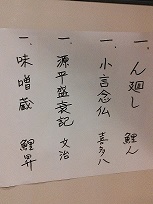 一、ん廻し 鯉ん
一、小言念仏 喜多八
一、源平盛衰記 文治
一、味噌蔵 鯉昇